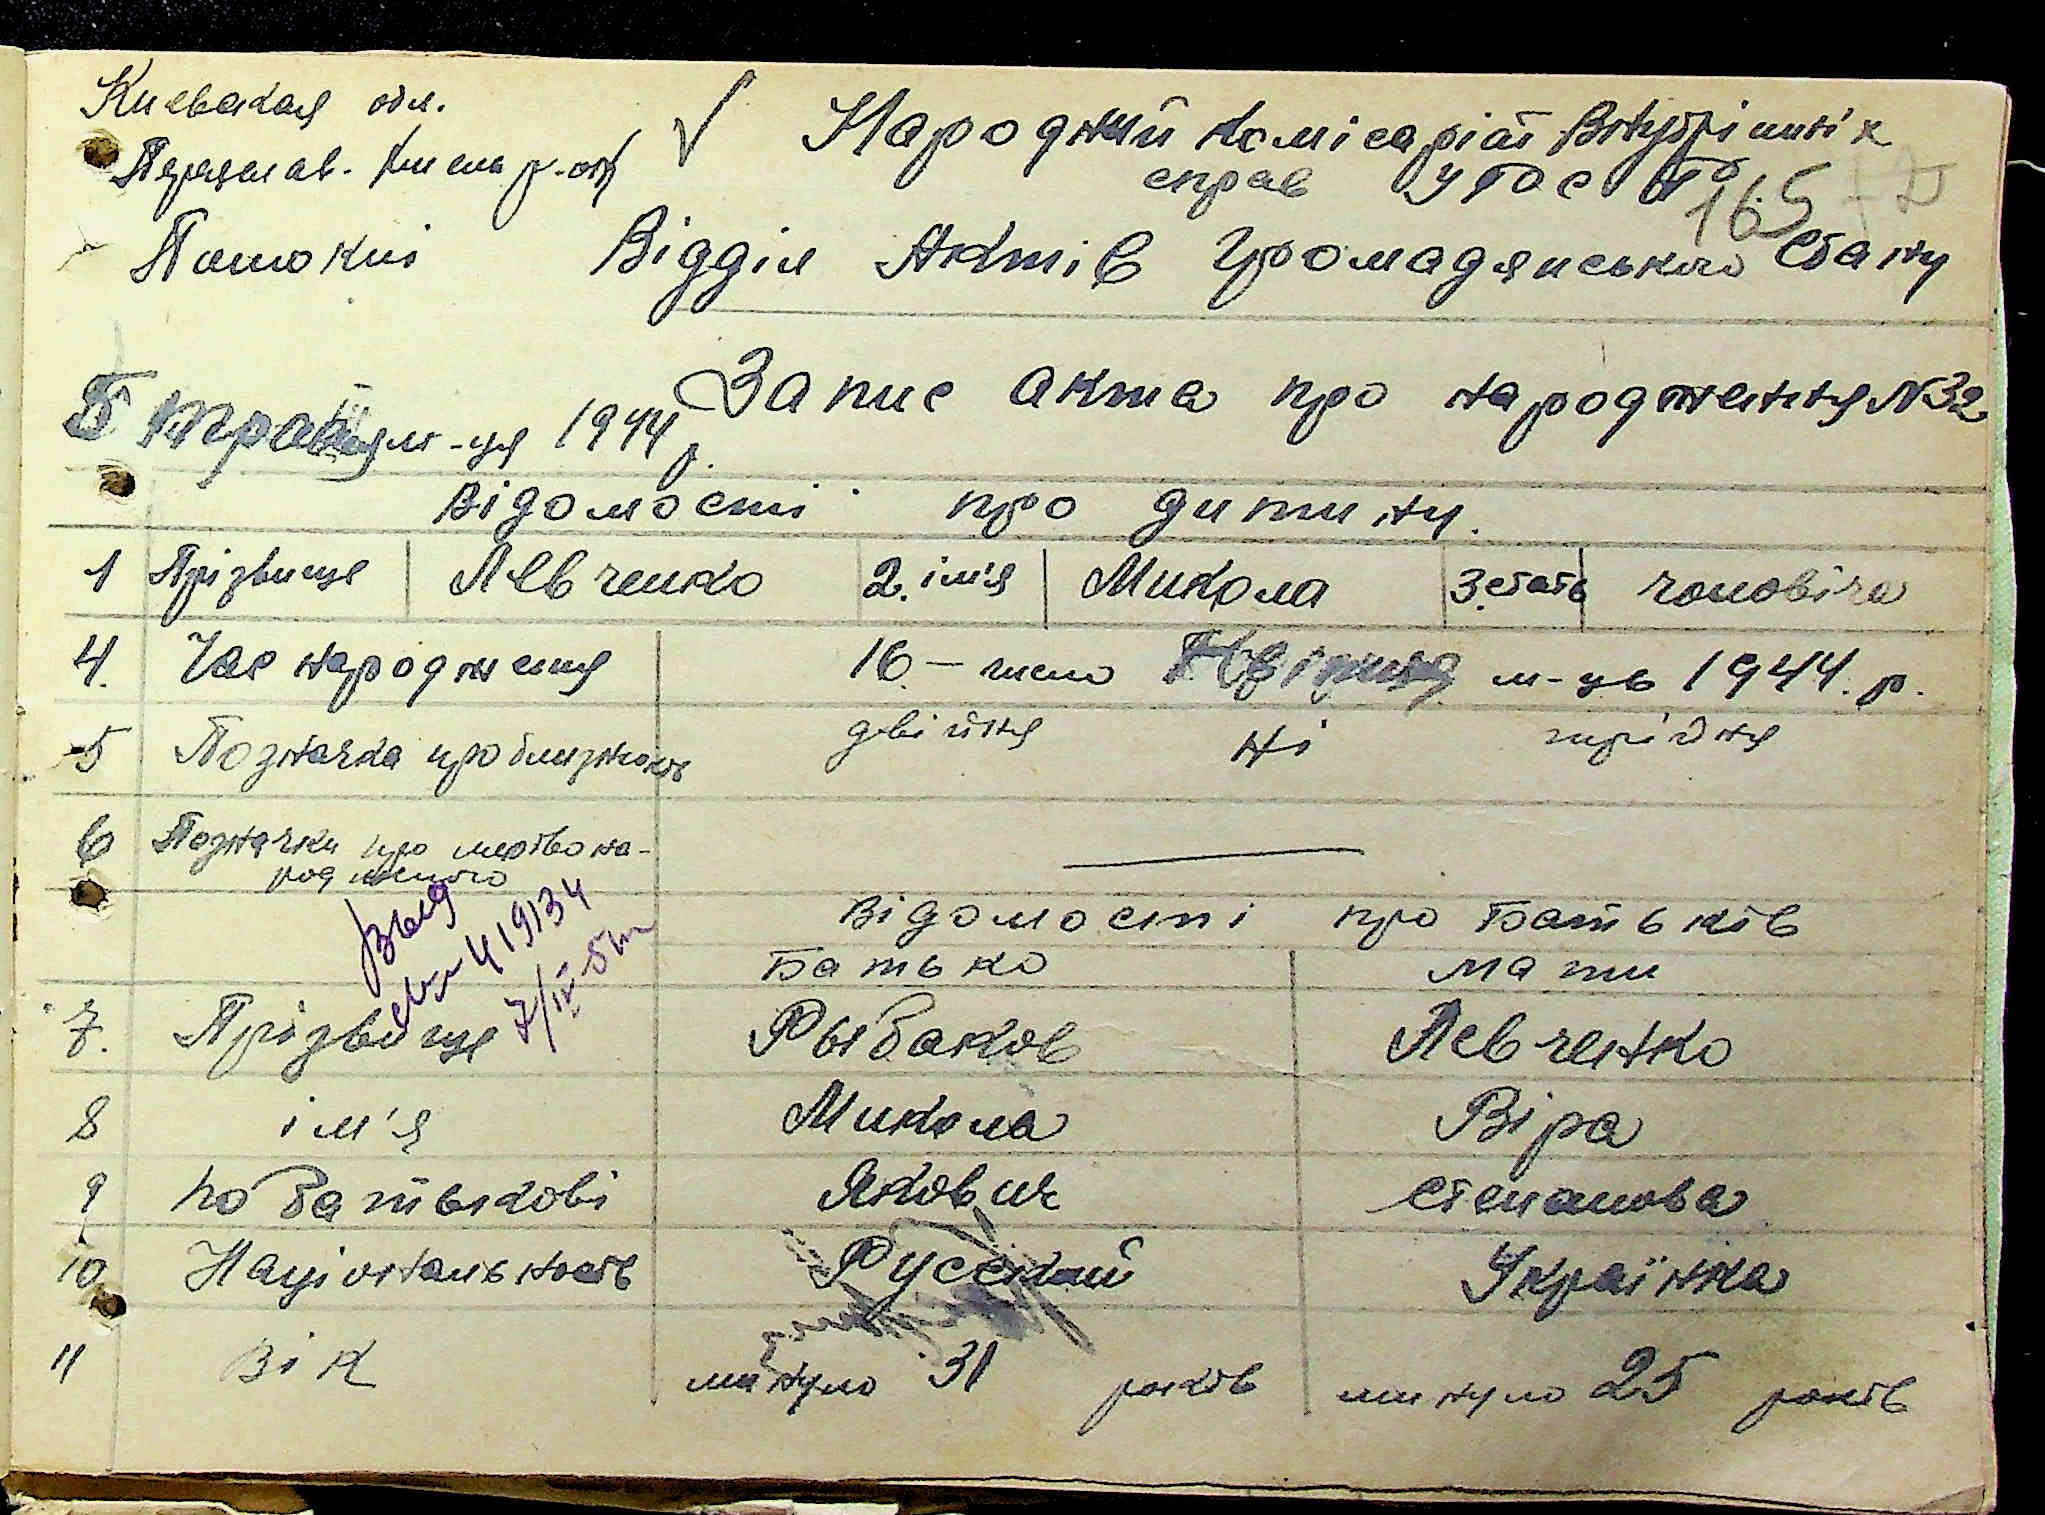 Киевская обл.
Переяслав. Хмель р-он
Потокні
√ Народний Комісаріат Внутрішніх
справ УРСР
165
Відділ Актів Громадянського Стану
5 травня м-ця 1944 р.
Запис акта про народження N32
Відомості про дитину.
1 Прізвище Левченко 2. ім'я Микола 3. стать чоловіча
4. Час народження 16 – число Квітня м-ць 1944. р.
5 Позначка про близнюків двійня ні трійня
6 Позначки про мертвона-
родженого —
Выд
свид 419134
7/IV-51
Відомості про Батьків
Батько Мати
7. Прізвище Рыбаков Левченко
8 ім'я Микола Віра
9 по батькові Якович Степанова
10 Національность Русский Українка
11 Вік минуло 31 років минуло 25 років